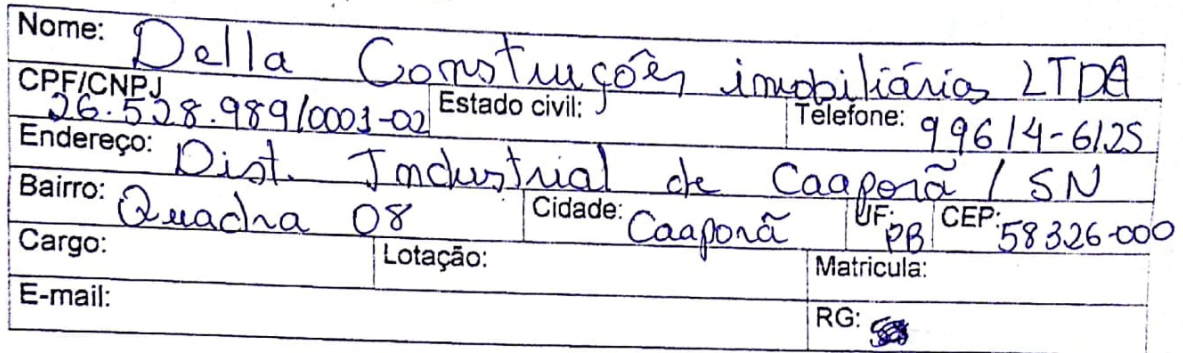 Nome: Della Construções imobiliárias LTDA
CPF/CNPJ 26.528.989/0001-02 Estado civil: Telefone: 99614-6125
Endereço: Dist. Industrial de Caaporã / SN
Bairro: Quadra 08 Cidade: Caaporã UF: PB CEP: 58326-000
Cargo: Lotação: Matricula:
E-mail: RG: